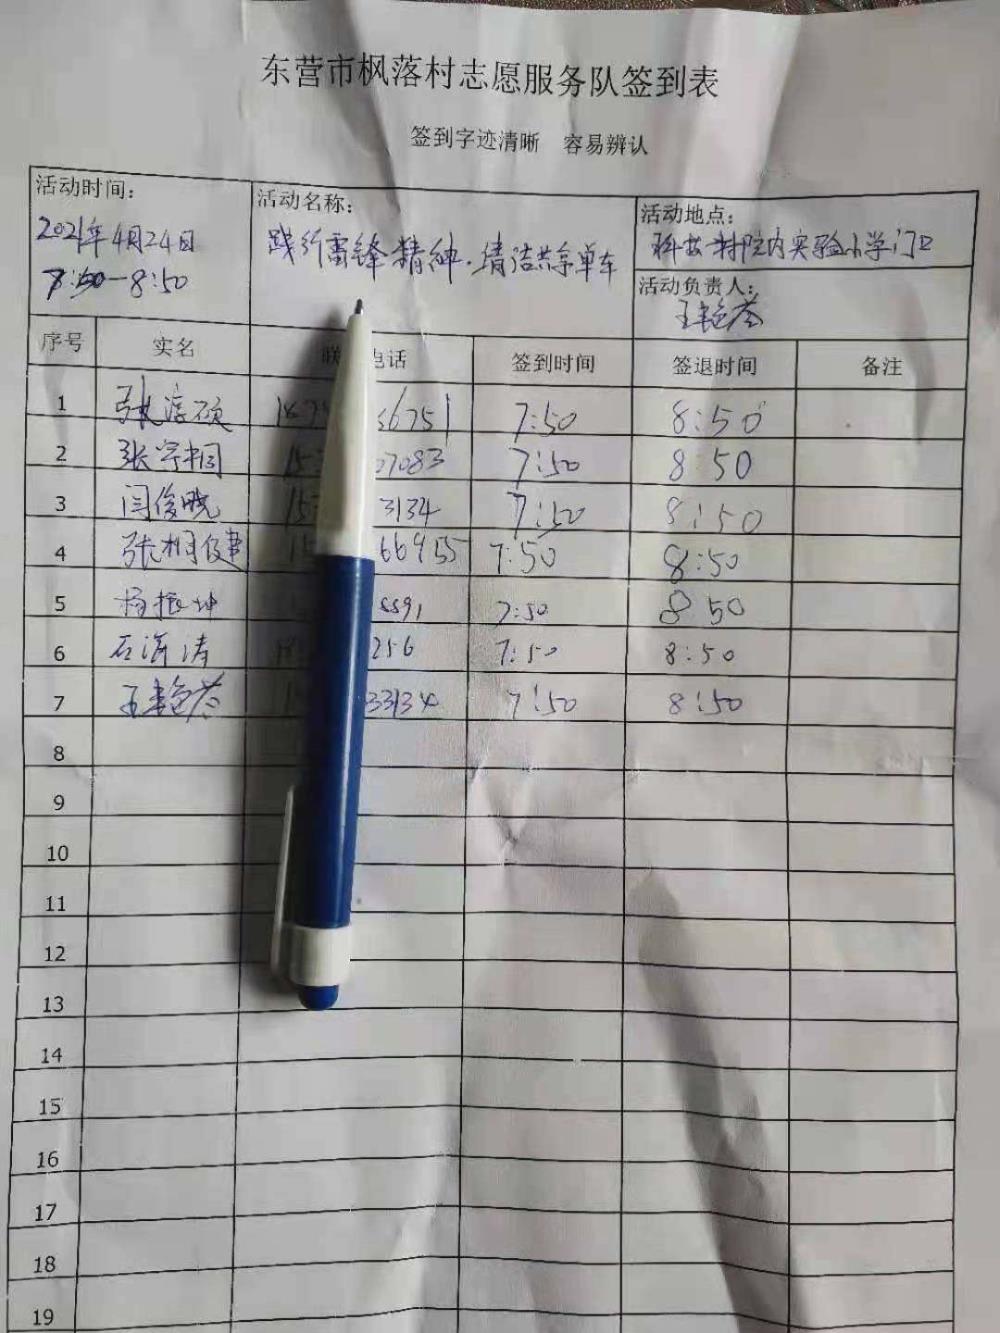 东营市枫落村志愿服务队签到表
签到字迹清晰 容易辨认
活动时间: 活动名称: 活动地点:
2021年4月24日 践行雷锋精神.清洁共享单车 科技村院内实验小学门口
7:50-8:50 活动负责人:
序号 实名 联 电话 签到时间 签退时间 备注
1 张 硕 6751 7:50 8:50
2 张宇桐 07083 7:50 8 50
3 闫俊晓 3134 7:50 8:50
4 张桐 66955 7:50 8:50
5 杨振坤 8591 7:50 8 50
6 石海涛 256 7:50 8:50
7 王 33134 7:50 8:50
8
9
10
11
12
13
14
15
16
17
18
19